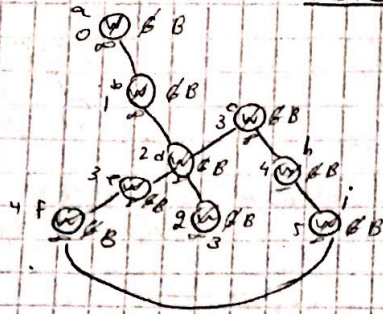 a
0 W G B
∞
b
1 W G B
∞
c
3 W G B
h
2 d W G B
4 W G B
3 e W G B
4 f W G B
2 W G B
3
i
5 W G B